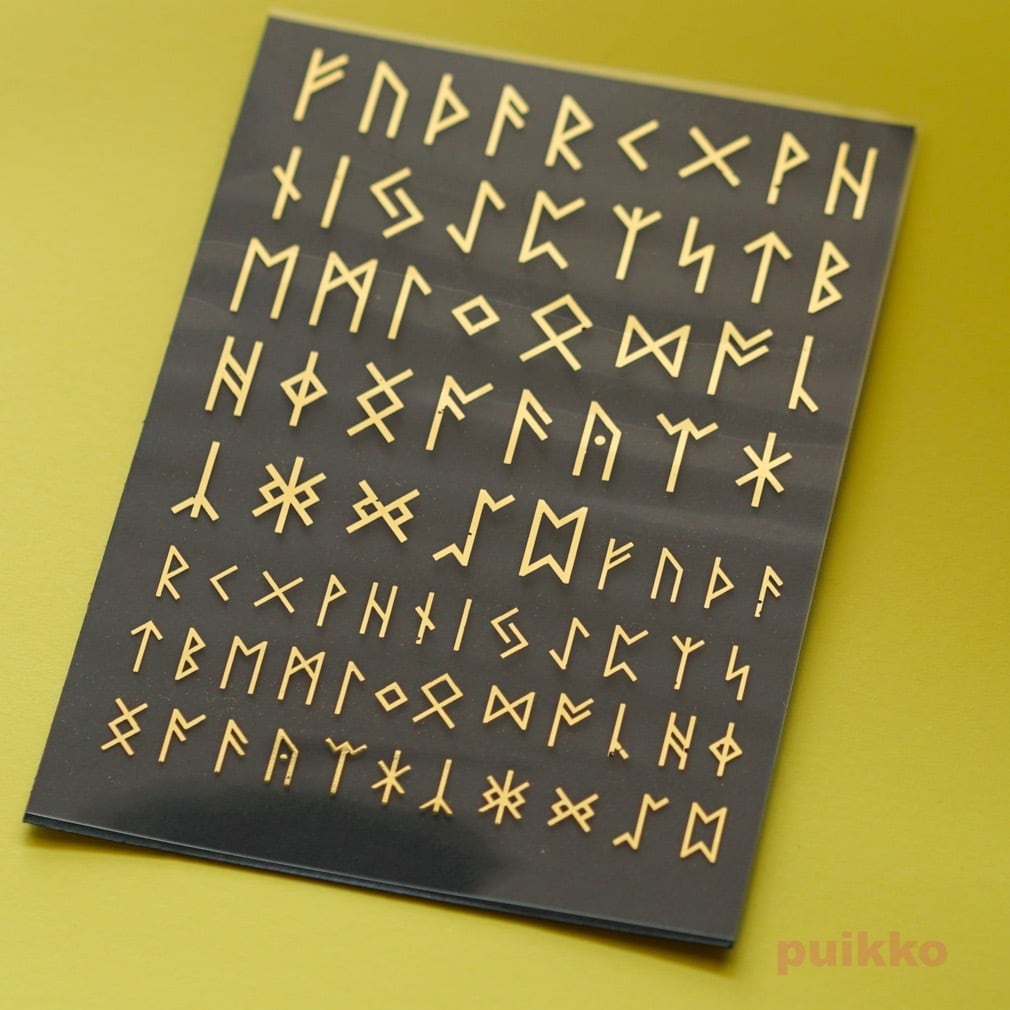 ᚠ ᚢ ᚦ ᚨ ᚱ ᚲ ᚷ ᚹ ᚺ
ᚾ ᛁ ᛃ ᛇ ᛈ ᛉ ᛋ ᛏ ᛒ
ᛖ ᛗ ᛚ ᛜ ᛟ ᛞ ᚩ ᚳ
ᚻ ᛄ ᛝ ᚪ ᚫ ᚣ ᛠ ᛡ
ᛣ ᛤ ᚸ ᛢ ᛥ ᚠ ᚢ ᚦ ᚨ
ᚱ ᚲ ᚷ ᚹ ᚺ ᚾ ᛁ ᛃ ᛇ ᛈ ᛉ ᛋ
ᛏ ᛒ ᛖ ᛗ ᛚ ᛜ ᛟ ᛞ ᚩ ᚳ ᚻ ᛄ
ᛝ ᚪ ᚫ ᚣ ᛠ ᛡ ᛣ ᛤ ᚸ ᛢ ᛥ
puikko